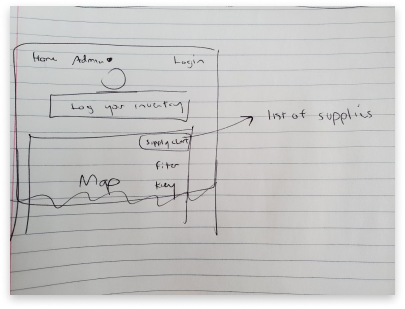 Home Admin Login
Log your inventory
Supply chart
list of supplies
filter
Map key